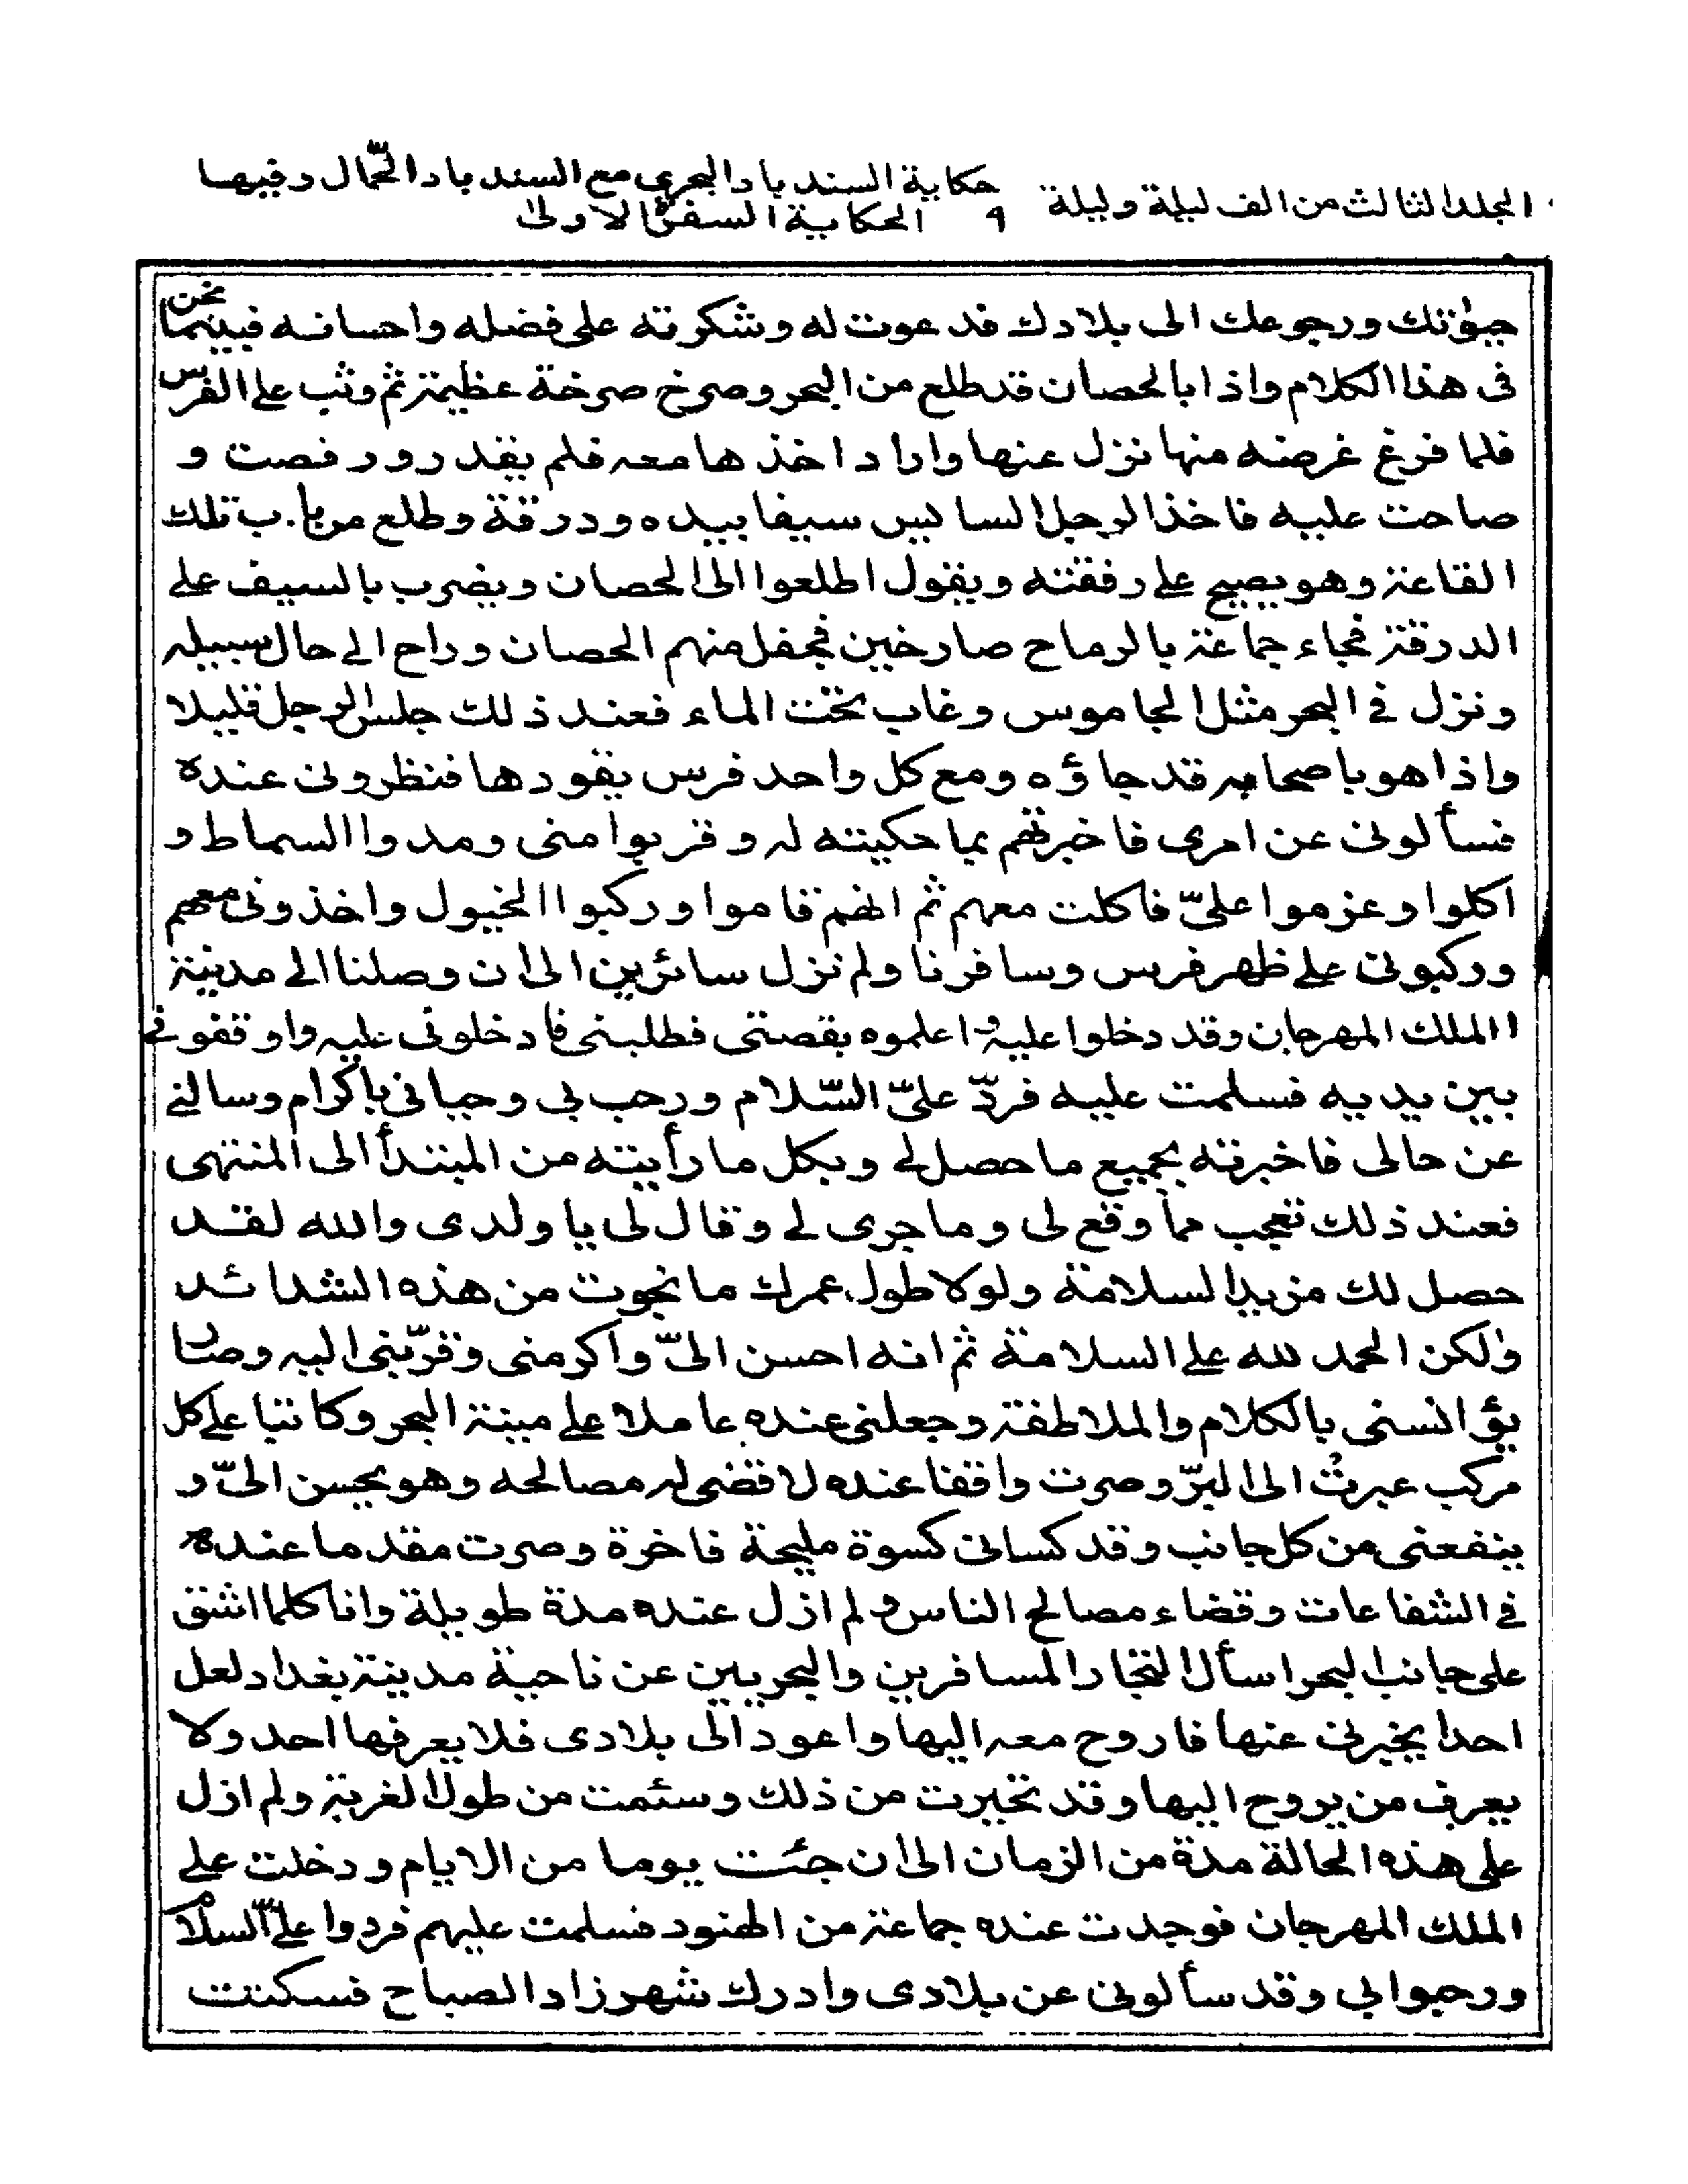 المجلد الثالث من الف ليلة وليلة ٩ حكاية السندباد البحري مع السندباد الحمّال وفيها
الحكاية السفرة الاولى
حيٰوتك ورجوعك الى بلادك فدعوت له وشكرته على فضله واحسانه فبينما نحن
فى هذا الكلام واذا بالحصان قد طلع من البحر وصرخ صرخة عظيمة ثم وثب على الفرس
فلما فرغ غرضه منها نزل عنها واراد اخذها معه فلم يقدر ورفصت و
صاحت عليه فاخذ الرجل السايس سيفا بيده ودرقة وطلع من باب تلك
القاعة وهو يصيح على رفقته ويقول اطلعوا الى الحصان ويضرب بالسيف على
الدرقة فجاء جماعة بالرماح صارخين فجفل منهم الحصان وراح الى حال سبيله
ونزل فى البحر مثل الجاموس وغاب تحت الماء فعند ذلك جلس الرجل قليلا
واذا هو باصحابه قد جاؤه ومع كل واحد فرس يقودها فنظرونى عنده
فسألونى عن امرى فاخبرتهم بما حكيته له وقربوا منى ومدوا السماط و
اكلوا وعزموا علىّ فاكلت معهم ثم انهم قاموا وركبوا الخيول واخذونى معهم
وركبونى على ظهر فرس وسافرنا ولم نزل سائرين الى ان وصلنا الى مدينة
الملك المهرجان وقد دخلوا عليه واعلموه بقصتى فطلبنى فادخلونى عليه واوقفونى
بين يديه فسلمت عليه فردّ علىّ السّلام ورحب بى وحيانى باكرام وسالنى
عن حالى فاخبرته بجميع ما حصل لى وبكل ما رأيته من المبتدأ الى المنتهى
فعند ذلك تعجب مما وقع لى وما جرى لى وقال لى يا ولدى والله لقد
حصل لك مزيد السلامة ولولا طول عمرك ما نجوت من هذه الشدائد
ولكن الحمد لله على السلامة ثم انه احسن الىّ واكرمنى وقرّبنى اليه وصار
يؤانسنى بالكلام والملاطفة وجعلنى عنده عاملا على مينة البحر وكاتبا على كل
مركب عبرت الى البرّ وصرت واقفا عنده لاقضى له مصالحه وهو يحسن الىّ و
ينفعنى من كل جانب وقد كسانى كسوة مليحة فاخرة وصرت مقدما عنده
فى الشفاعات وقضاء مصالح الناس ولم ازل عنده مدة طويلة وانا كلما اشق
على جانب البحر اسأل التجار المسافرين والبحريين عن ناحية مدينة بغداد لعل
احدا يخبرنى عنها فاروح معه اليها واعود الى بلادى فلا يعرفها احد ولا
يعرف من يروح اليها وقد تحيرت من ذلك وسئمت من طول الغربة ولم ازل
على هذه الحالة مدة من الزمان الى ان جئت يوما من الايام ودخلت على
الملك المهرجان فوجدت عنده جماعة من الهنود فسلمت عليهم فردوا علىّ السلام
ورحبوا بى وقد سألونى عن بلادى وادرك شهرزاد الصباح فسكتت